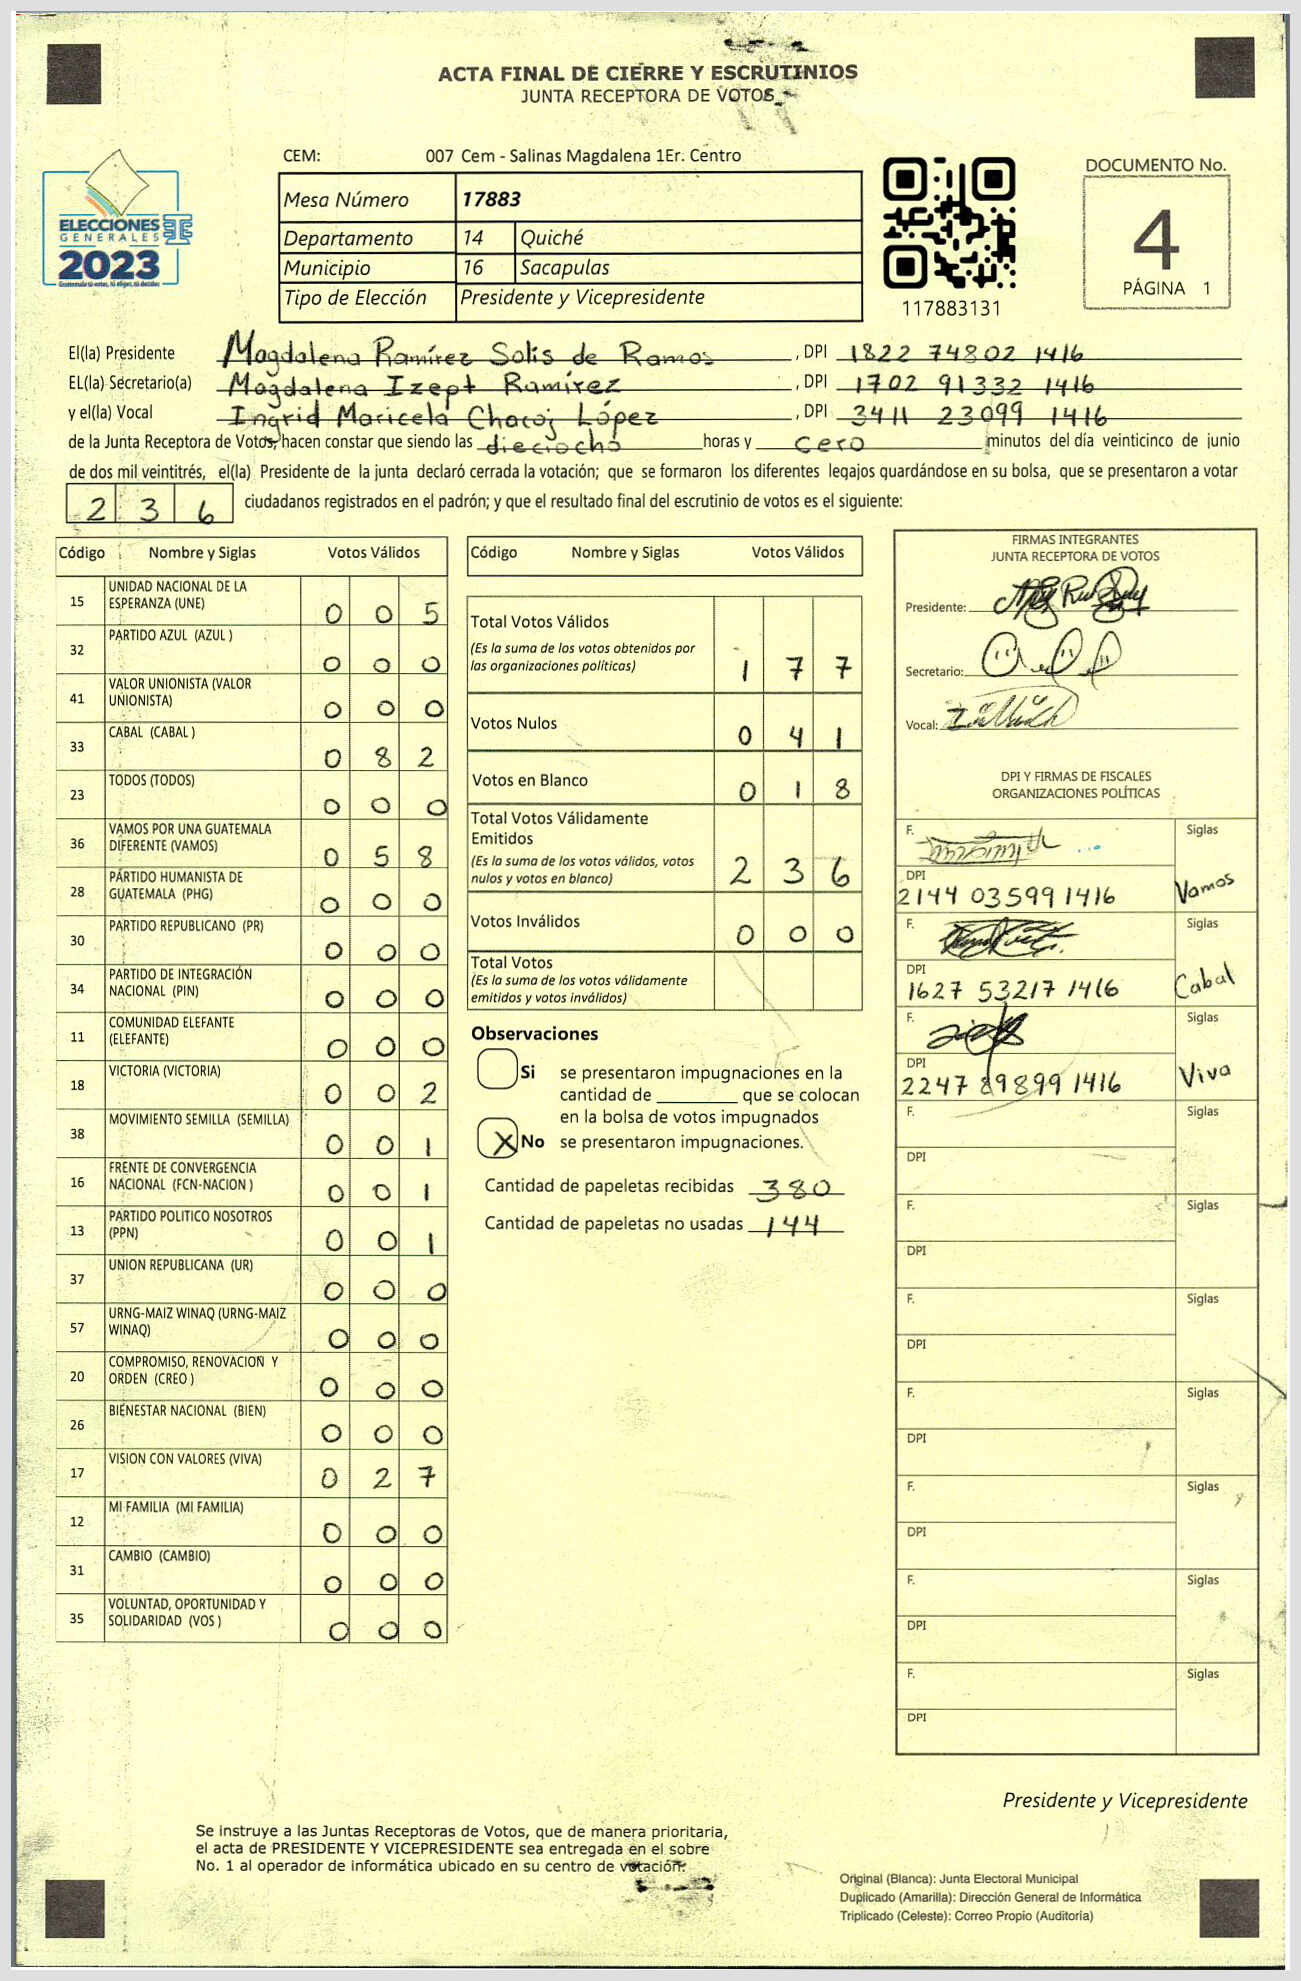 ACTA FINAL DE CIERRE Y ESCRUTINIOS
JUNTA RECEPTORA DE VOTOS
CEM: 007 Cem - Salinas Magdalena 1Er. Centro
Mesa Número 17883
Departamento 14 Quiché
Municipio 16 Sacapulas
Tipo de Elección Presidente y Vicepresidente
ELECCIONES
GENERALES
TSE
2023
Guatemala tú votas, tú eliges, tú decides
117883131
DOCUMENTO No.
4
PÁGINA 1
El(la) Presidente Magdalena Ramírez Solis de Ramos , DPI 1822 74802 1416
EL(la) Secretario(a) Magdalena Izept Ramírez , DPI 1702 91332 1416
y el(la) Vocal Ingrid Maricela Chacoj López , DPI 3411 23099 1416
de la Junta Receptora de Votos, hacen constar que siendo las dieciocho horas y cero minutos del día veinticinco de junio
de dos mil veintitrés, el(la) Presidente de la junta declaró cerrada la votación; que se formaron los diferentes legajos guardándose en su bolsa, que se presentaron a votar
2 3 6 ciudadanos registrados en el padrón; y que el resultado final del escrutinio de votos es el siguiente:
Código Nombre y Siglas Votos Válidos
15 UNIDAD NACIONAL DE LA
ESPERANZA (UNE) 0 0 5
32 PARTIDO AZUL (AZUL ) 0 0 0
41 VALOR UNIONISTA (VALOR
UNIONISTA) 0 0 0
33 CABAL (CABAL ) 0 8 2
23 TODOS (TODOS) 0 0 0
36 VAMOS POR UNA GUATEMALA
DIFERENTE (VAMOS) 0 5 8
28 PARTIDO HUMANISTA DE
GUATEMALA (PHG) 0 0 0
30 PARTIDO REPUBLICANO (PR) 0 0 0
34 PARTIDO DE INTEGRACIÓN
NACIONAL (PIN) 0 0 0
11 COMUNIDAD ELEFANTE
(ELEFANTE) 0 0 0
18 VICTORIA (VICTORIA) 0 0 2
38 MOVIMIENTO SEMILLA (SEMILLA) 0 0 1
16 FRENTE DE CONVERGENCIA
NACIONAL (FCN-NACION ) 0 0 1
13 PARTIDO POLITICO NOSOTROS
(PPN) 0 0 1
37 UNION REPUBLICANA (UR) 0 0 0
57 URNG-MAIZ WINAQ (URNG-MAIZ
WINAQ) 0 0 0
20 COMPROMISO, RENOVACION Y
ORDEN (CREO ) 0 0 0
26 BIENESTAR NACIONAL (BIEN) 0 0 0
17 VISION CON VALORES (VIVA) 0 2 7
12 MI FAMILIA (MI FAMILIA) 0 0 0
31 CAMBIO (CAMBIO) 0 0 0
35 VOLUNTAD, OPORTUNIDAD Y
SOLIDARIDAD (VOS ) 0 0 0
Código Nombre y Siglas Votos Válidos
Total Votos Válidos
(Es la suma de los votos obtenidos por
las organizaciones políticas) 1 7 7
Votos Nulos 0 4 1
Votos en Blanco 0 1 8
Total Votos Válidamente
Emitidos
(Es la suma de los votos válidos, votos
nulos y votos en blanco) 2 3 6
Votos Inválidos 0 0 0
Total Votos
(Es la suma de los votos válidamente
emitidos y votos inválidos)
Observaciones
Si se presentaron impugnaciones en la
cantidad de ________ que se colocan
en la bolsa de votos impugnados
X No se presentaron impugnaciones.
Cantidad de papeletas recibidas 380
Cantidad de papeletas no usadas 144
FIRMAS INTEGRANTES
JUNTA RECEPTORA DE VOTOS
Presidente:
Secretario:
Vocal:
DPI Y FIRMAS DE FISCALES
ORGANIZACIONES POLÍTICAS
F. Siglas
DPI
2144 03599 1416 Vamos
F. Siglas
DPI
1627 53217 1416 Cabal
F. Siglas
DPI
2247 89899 1416 Viva
F. Siglas
DPI
F. Siglas
DPI
F. Siglas
DPI
F. Siglas
DPI
F. Siglas
DPI
F. Siglas
DPI
F. Siglas
DPI
Presidente y Vicepresidente
Se instruye a las Juntas Receptoras de Votos, que de manera prioritaria,
el acta de PRESIDENTE Y VICEPRESIDENTE sea entregada en el sobre
No. 1 al operador de informática ubicado en su centro de votación.
Original (Blanca): Junta Electoral Municipal
Duplicado (Amarilla): Dirección General de Informática
Triplicado (Celeste): Correo Propio (Auditoría)